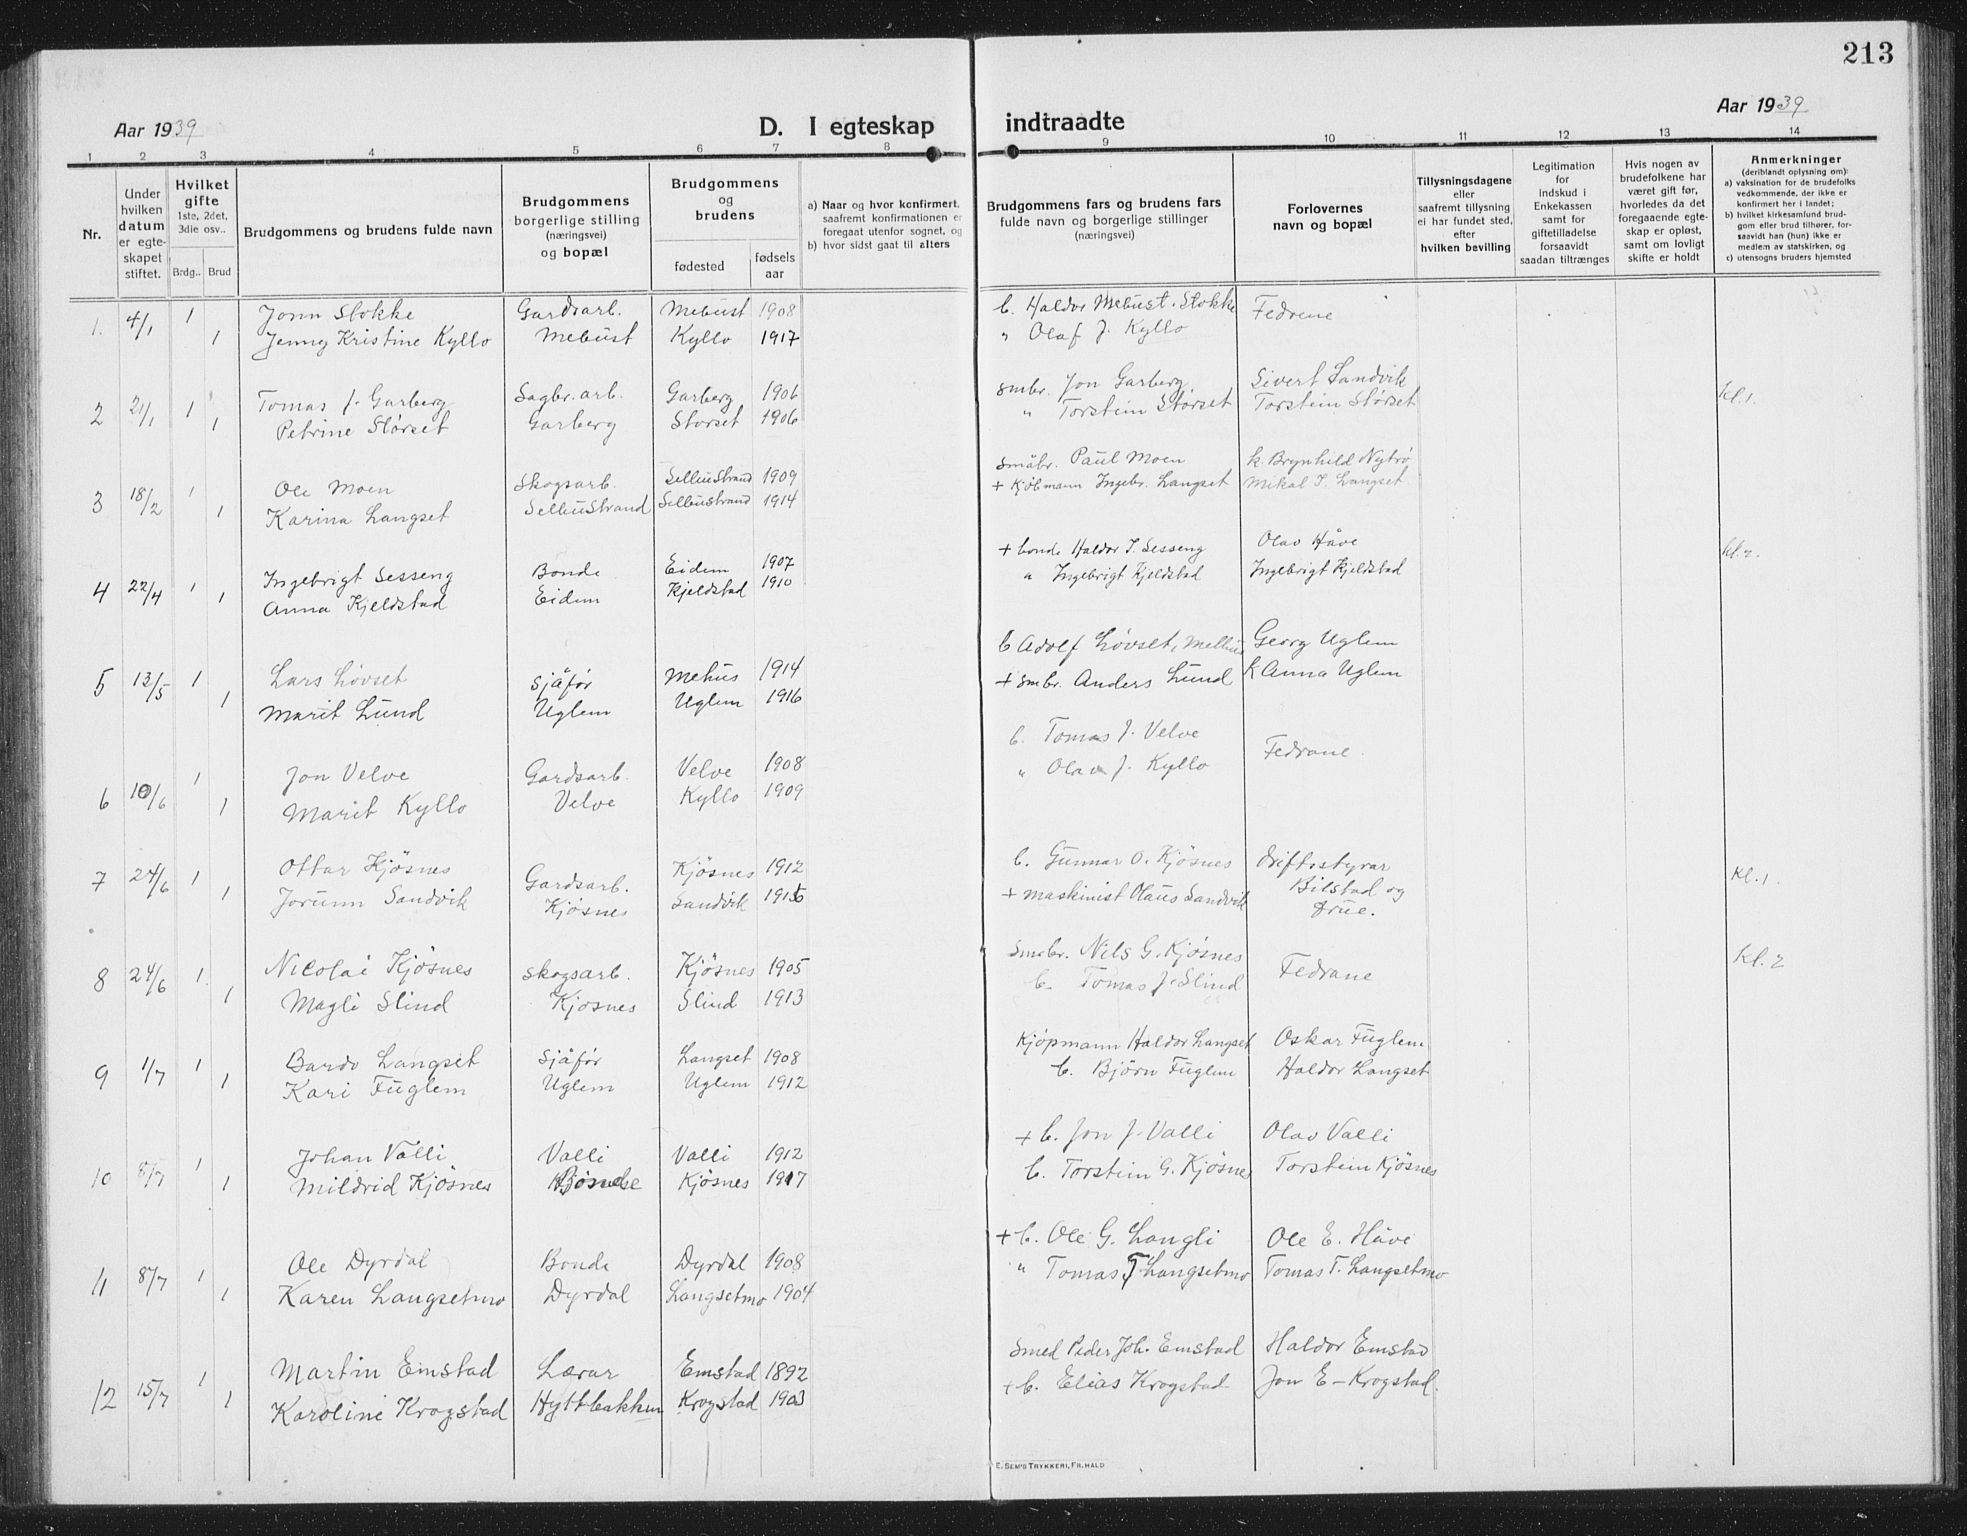 213
Aar 1939
D. I egteskap indtraadte
Aar 1939
1 2 3 4 5 6 7 8 9 10 11 12 13 14
Nr.
Under hvilken datum er egteskapet stiftet.
Hvilket gifte
1ste, 2det, 3die osv..
Brdg.. Brud
Brudgommens og brudens fulde navn
Brudgommens borgerlige stilling (næringsvei) og bopæl
Brudgommens og brudens
fødested
fødsels aar
a) Naar og hvor konfirmert, saafremt konfirmationen er foregaat utenfor sognet, og
b) hvor sidst gaat til alters
Brudgommens fars og brudens fars fulde navn og borgerlige stillinger (næringsvei)
Forlovernes navn og bopæl
Tillysningsdagene eller saafremt tillysning ei har fundet sted, efter hvilken bevilling
Legitimation for indskud i Enkekassen samt for giftetilladelse forsaavidt saadan tiltrænges
Hvis nogen av brudefolkene har været gift før, hvorledes da det foregaaende egteskap er opløst, samt om lovligt skifte er holdt
Anmerkninger
(deriblandt oplysning om):
a) vaksination for de brudefolks vedkommende, der ikke er konfirmert her i landet;
b) hvilket kirkesamfund brudgom eller brud tilhører, forsaavidt han (hun) ikke er medlem av statskirken, og
c) utensogns bruders hjemsted
1. 4/1 1 Jonn Stokke Gardsarb. Mebust 1908 b. Haldor Mebust-Stokke Fedrene
1 Jenny Kristine Kyllo Mebust Kyllo 1917 " Olaf J. Kyllo
2 21/1 1 Tomas J. Garberg Sagbr.arb. Garberg 1906 smbr. Jon Garberg Sivert Sandvik Kl.1.
1 Petrine Størset Garberg Størset 1906 " Torstein Størset Torstein Størset
3 18/2 1 Ole Moen Skogsarb. Selbustrand 1909 småbr. Paul Moen k. Brynhild Nytrø
1 Karina Langset Selbustrand Selbustrand 1914 + Kjøbmann Ingebr. Langset Mikal I. Langset
4 22/4 1 Ingebrigt Sesseng Bonde Eidem 1907 + bonde Haldor I. Sesseng Olav Håve Kl. 2.
1 Anna Kjeldstad Eidem Kjeldstad 1910 " Ingebrigt Kjeldstad Ingebrigt Kjeldstad
5 13/5 1 Lars Løvset Sjåfør Mehus 1914 b Adolf Løvset, Georg Uglem
1 Marit Lund Uglem Uglem 1916 + smbr. Anders Lund k Anna Uglem
6 10/6 1 Jon Velve Gardsarb. Velve 1908 b. Tomas J. Velve Fedrane.
1 Marit Kyllo Velve Kyllo 1909 " Olav J. Kyllo
7 24/6 1 Ottar Kjösnes Gardsarb. Kjøsnes 1912 b. Gunnar O. Kjøsnes driftsstyrar Bilstad og frue. Kl.1.
1 Jorunn Sandvik Kjøsnes Sandvik + maskinist Olaus Sandvik
8 24/6 1 Nicolai Kjøsnes Skogsarb. Kjøsnes 1905 smbr. Nils G. Kjøsnes Fedrane Kl. 2
1 Magli Slind Kjøsnes Slind 1913 b. Tomas J. Slind
9 1/7 1 Bardo Langset Sjåfør Langset 1908 Kjøpmann Haldor Langset Oskar Fuglem
1 Kari Fuglem Uglem Uglem 1912 b. Bjørn Fuglem Haldor Langset
10 8/7 1 Johan Valli Valli Valli 1912 + b. Jon J. Valli Olav Valli
1 Mildrid Kjøsnes Kjøsnes 1917 b. Torstein G. Kjøsnes Torstein Kjøsnes
11 8/7 1 Ole Dyrdal Bonde Dyrdal 1908 + b. Ole G. Langli Ole E. Håve
1 Karen Langsetmo Dyrdal Langsetmo 1904 " Tomas T Langsetmo Tomas T. Langsetmo
12 15/7 1 Martin Emstad Lærar Emstad 1892 Smed Peder Joh. Emstad Haldor Emstad
1 Karoline Krogstad Hyttbakken Krogstad 1903 + b. Elias Krogstad Jon E-Krogstad.
E. SEM'S TRYKKERI, FR.HALD